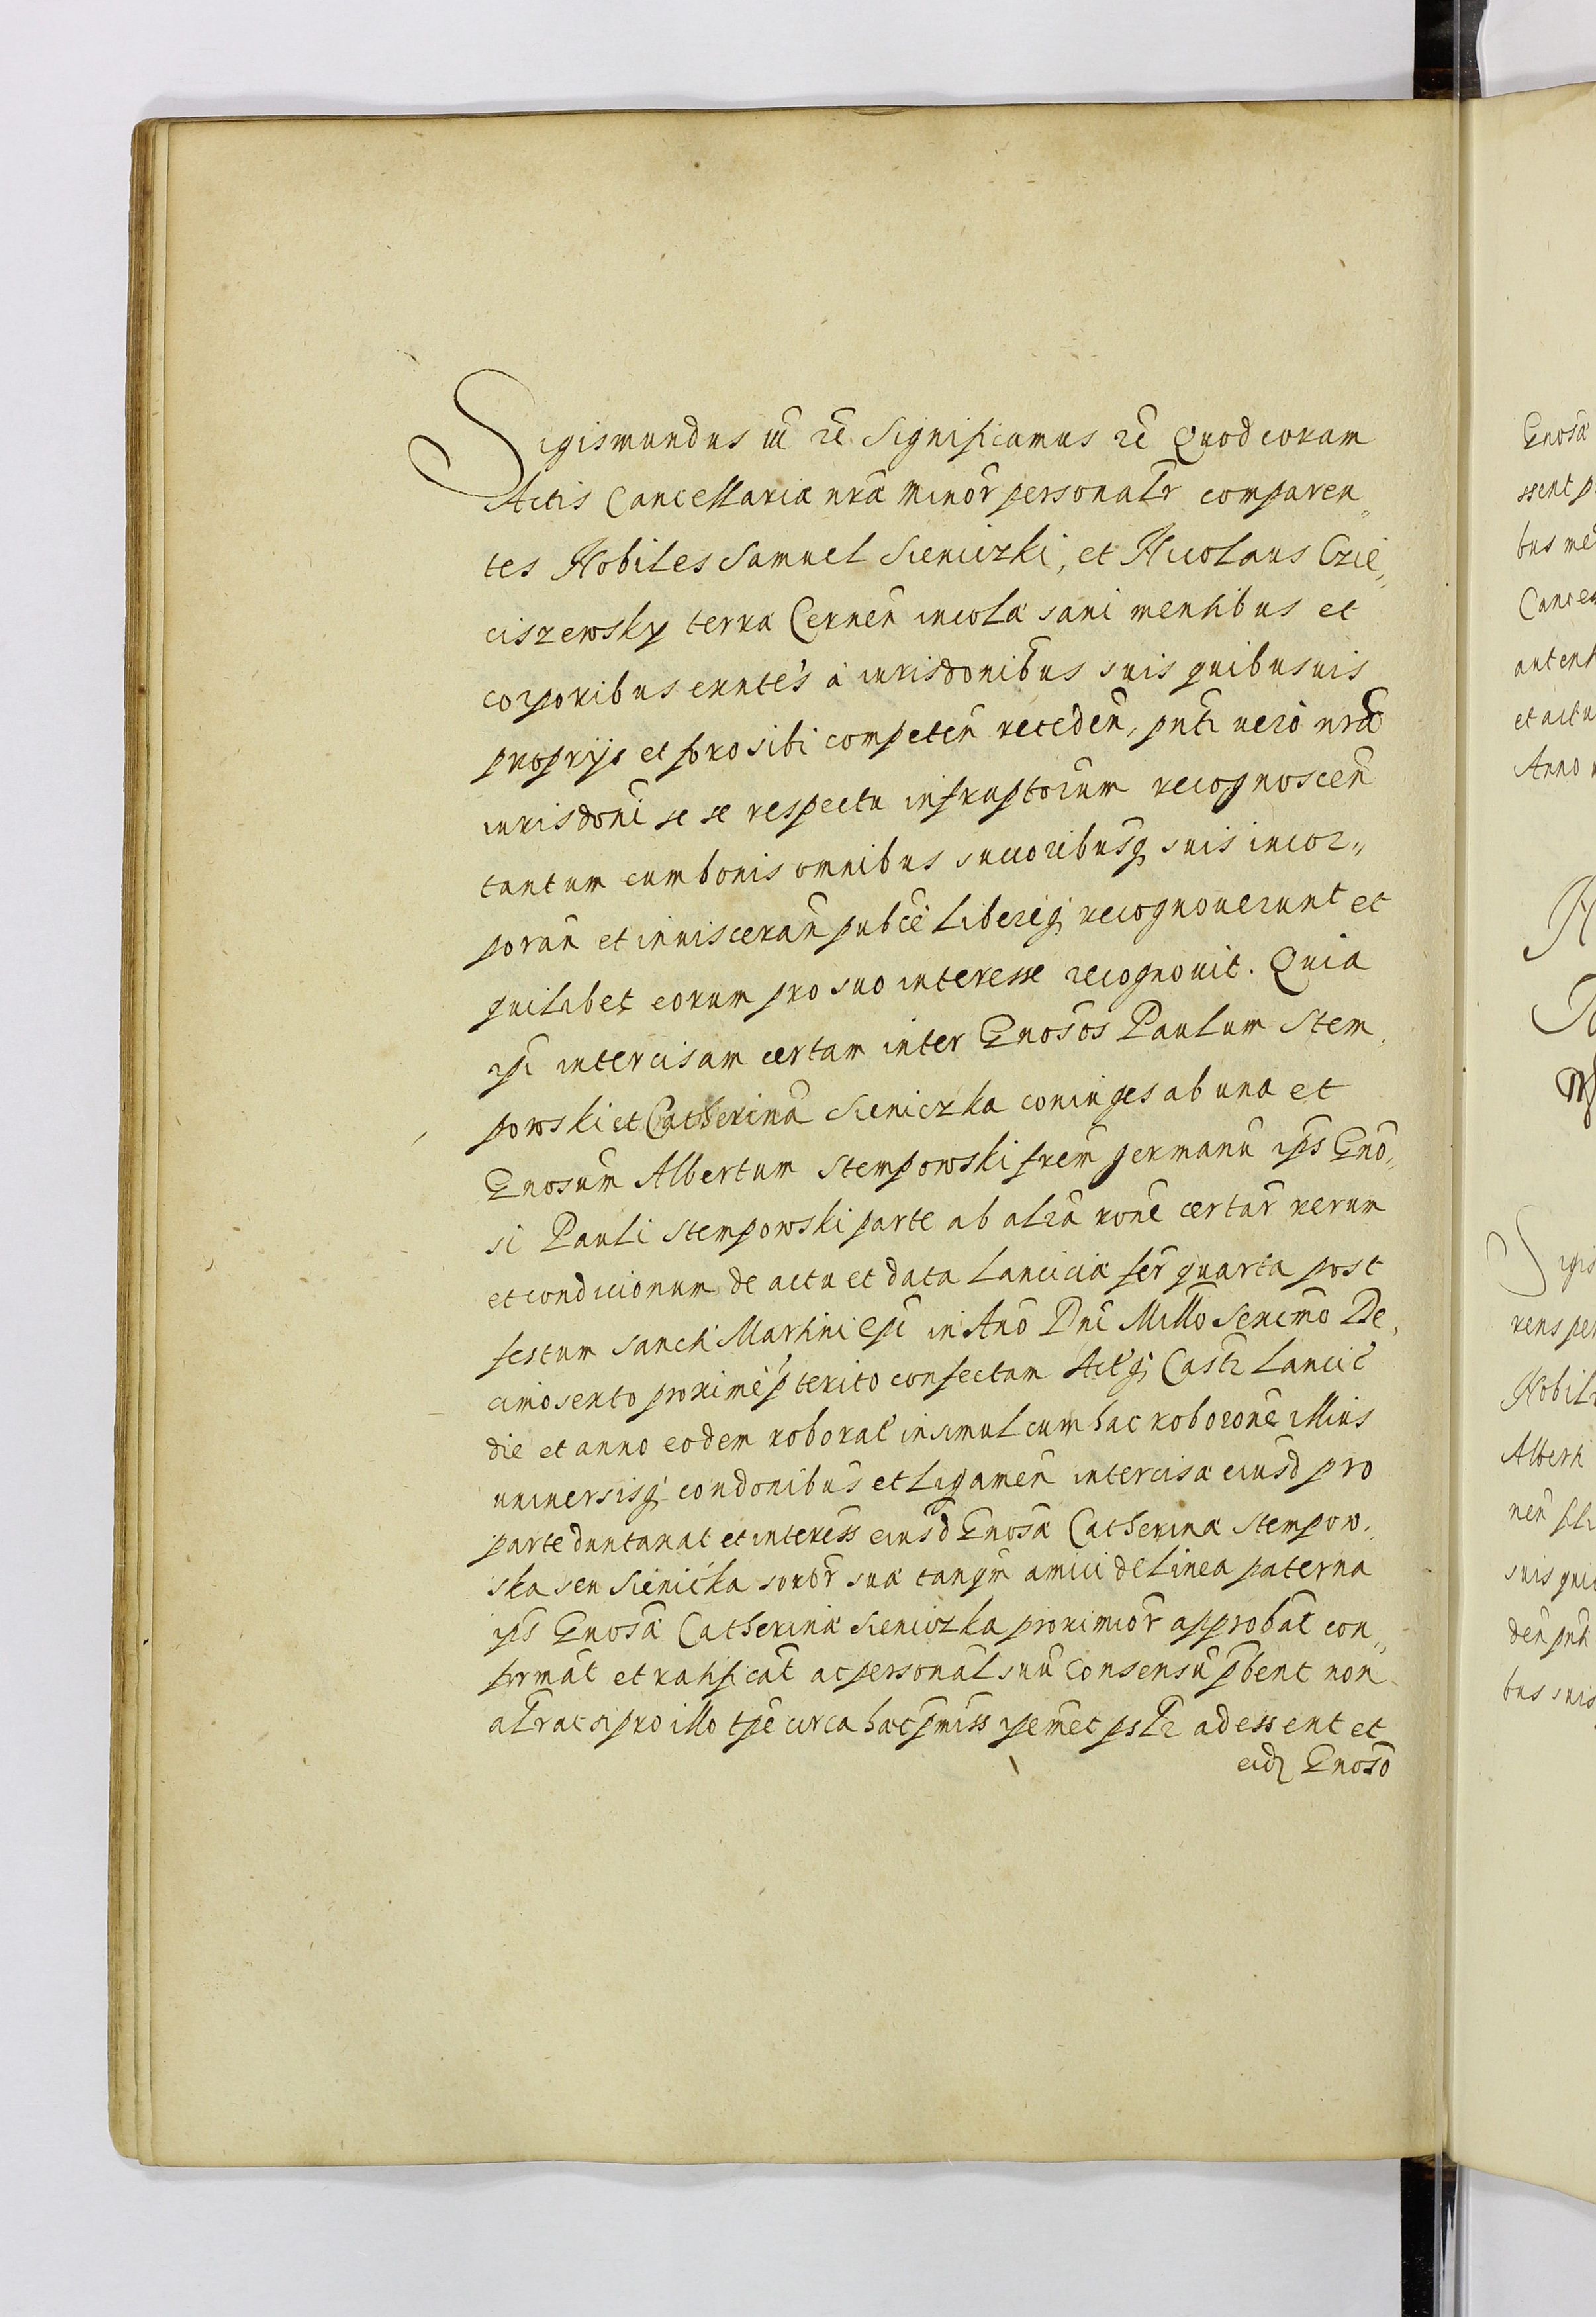 Sigismundus iii etc. Significamus etc Quod coram
Actis Cancellariæ nræ minor personalr comparen„
tes Nobiles Samuel Sieniczki, et Nicolaus Czie„
ciszewsky terræ Cernen incolæ sani mentibus et
corporibus exntes á iurisdonibus suis quibusuis
proprijs et foro sibi competen receden, pnti uero nræ
iurisdoni se se respectu infraptorum recognoscen
tantum cum bonis omnibus succoribusq suis incor„
poran et inuisceran publce libereq recognouerunt et
quilibet eorum pro suo interesse recognouit. Quia
ipi intercisam certam inter Gnosos Paulum Stem„
powski et Catherina Sieniczka coniuges ab una et
Gnosum Albertum Stempowski frem germanu ips Gno„
si Pauli Stempowski parte ab alra rone certar rerum
et condicionum de actu et data Lanciciæ fer quarta post
festum Sancti Martini Epi in Ano Dni Millo Sexcmo De„
cimosexto proxime pterito confectam Actq Castr Lancic
die et anno eodem roborat insimul cum hac roborone illius
uniuersisq condonibus et ligamen intercisæ eiusd pro
parte duntaxat et interess eiusd Gnosæ Catherinæ Stempow„
ska seu Sienicka soror suæ tanqm amici de linea paterna
ips Gnosæ Catherinæ Sieniczka proximior approbat con„
firmat et ratificat ac personal suu Consensu pbent non
alr ac si pro illo tpe circa hac pmiss ipemet pslr adessent et
eid Gnoso
Gnosa
ssent p
bus me
Cance
autent
et actu
Anno
Sigis
rens per
Nobil
Alberti
nen fi
suis qui
den pnti
bus suis